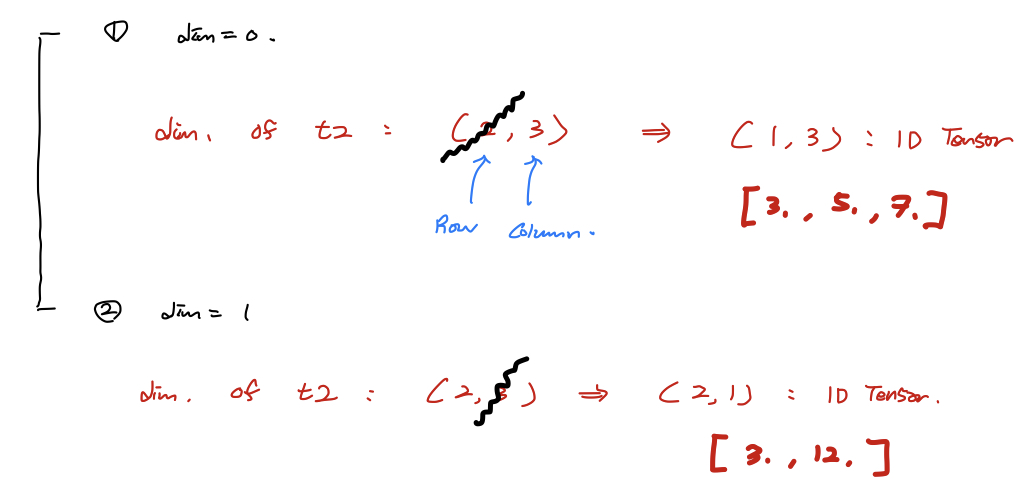 ① dim = 0 .
dim. of t2 : (2, 3) ⇒ (1, 3) : 1D Tensor
Row Column.
[3. , 5. , 7.]
② dim = 1
dim. of t2 : (2, 3) ⇒ (2, 1) : 1D Tensor.
[3. , 12.]